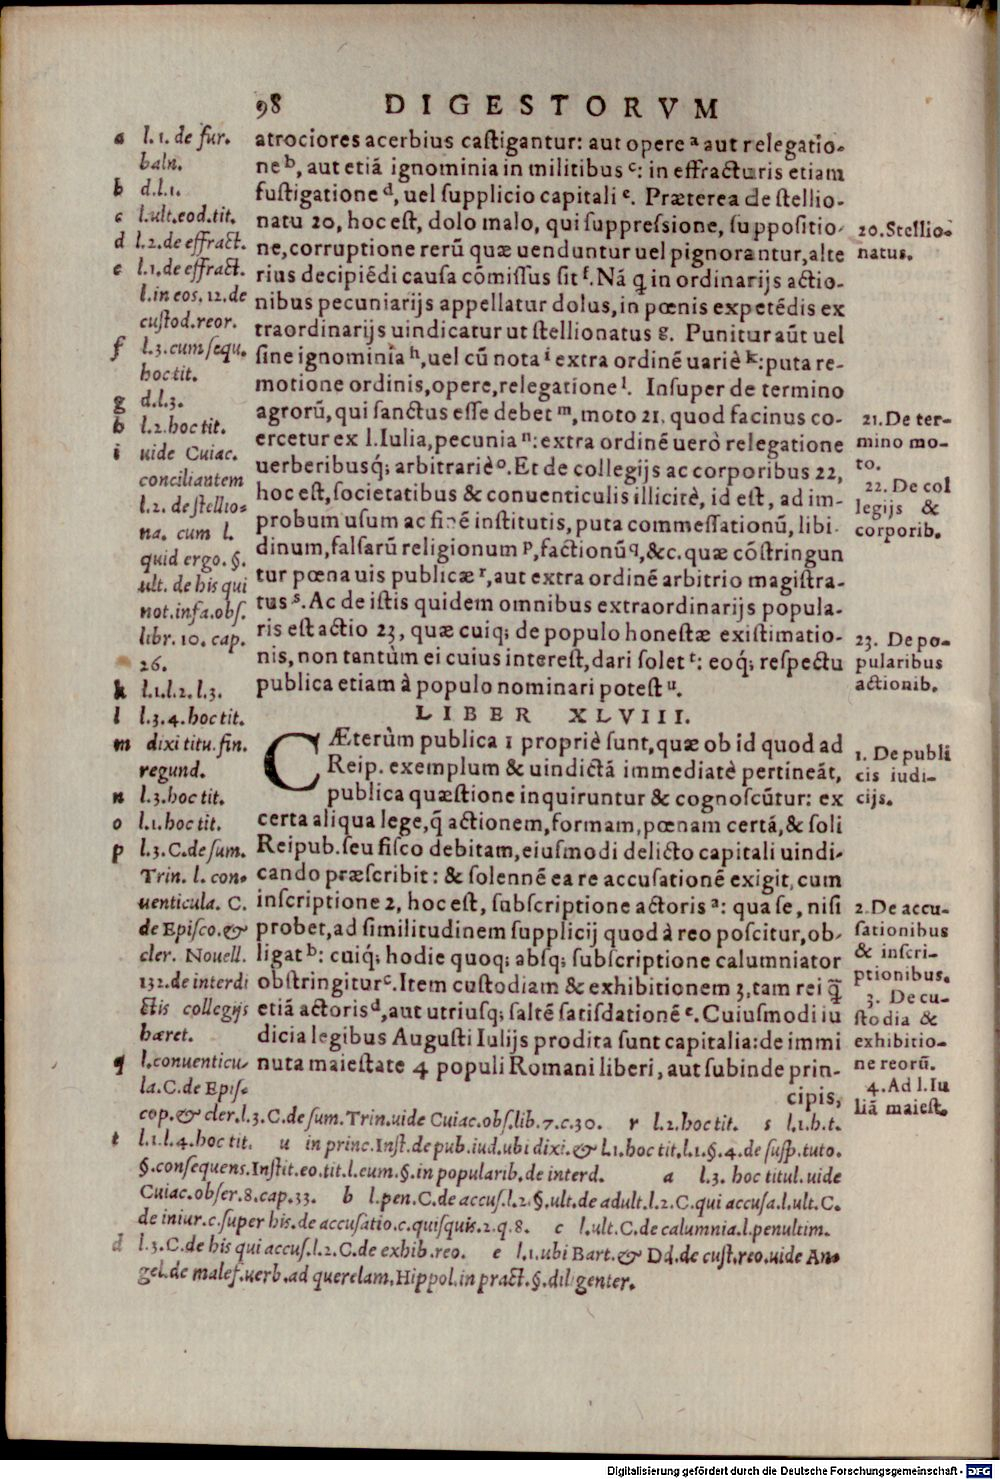 98 DIGESTORVM
a l.1. de fur.
baln.
b d.l.1.
c l.ult.eod.tit.
d l.2.de effract.
e l.1.de effract.
l.in eos.12.de
custod.reor.
f l.3.cum sequ.
hoc tit.
g d.l.3.
h l.2.hoc tit.
i uide Cuiac.
conciliantem
l.2. de stellio-
na. cum l.
quid ergo. §.
ult. de his qui
not.infa.obs.
libr. 10. cap.
26.
k l.1.l.2.l.3.
l l.3.4.hoc tit.
m dixi titu.fin.
regund.
n l.3.hoc tit.
o l.1.hoc tit.
p l.3.C.de sum.
Trin. l. con-
uenticula. C.
de Episco.&
cler. Nouell.
132.de interdi
ctis collegijs
hæret.
q l.conuenticu-
la.C.de Epis-
atrociores acerbius castigantur: aut opere a aut relegatio-
ne b, aut etiã ignominia in militibus c: in effracturis etiam
fustigatione d, uel supplicio capitali e. Præterea de stellio-
natu 20, hoc est, dolo malo, qui suppressione, suppositio-
ne,corruptione rerũ quæ uenduntur uel pignorantur,alte
rius decipiẽdi causa cõmissus sit f. Nã q̃ in ordinarijs actio-
nibus pecuniarijs appellatur dolus, in pœnis expetẽdis ex
traordinarijs uindicatur ut stellionatus g. Punitur aũt uel
sine ignominia h, uel cũ nota i extra ordinẽ uariè k: puta re-
motione ordinis,opere,relegatione l. Insuper de termino
agrorũ, qui sanctus esse debet m, moto 21, quod facinus co-
ercetur ex l.Iulia, pecunia n: extra ordinẽ uerò relegatione
uerberibusq́; arbitrariè o. Et de collegijs ac corporibus 22,
hoc est, societatibus & conuenticulis illicitè, id est, ad im-
probum usum ac finẽ institutis, puta commessationũ, libi
dinum, falsarũ religionum p, factionũ q, &c. quæ cõstringun
tur pœna uis publicæ r, aut extra ordinẽ arbitrio magistra-
tus s. Ac de istis quidem omnibus extraordinarijs popula-
ris est actio 23, quæ cuiq; de populo honestæ existimatio-
nis, non tantùm ei cuius interest, dari solet t: eoq́; respectu
publica etiam à populo nominari potest u.
LIBER XLVIII.
CÆterùm publica 1 propriè sunt, quæ ob id quod ad
Reip. exemplum & uindictã immediatè pertineãt,
publica quæstione inquiruntur & cognoscũtur: ex
certa aliqua lege, q̃ actionem, formam, pœnam certã, & soli
Reipub. seu fisco debitam, eiusmodi delicto capitali uindi-
cando præscribit: & solennẽ ea re accusationẽ exigit, cum
inscriptione 2, hoc est, subscriptione actoris a: qua se, nisi
probet, ad similitudinem supplicij quod à reo poscitur, ob-
ligat b: cuiq́; hodie quoq; absq; subscriptione calumniator
obstringitur c. Item custodiam & exhibitionem 3, tam rei q̃
etiã actoris d, aut utriusq; saltẽ satisdationẽ e. Cuiusmodi iu
dicia legibus Augusti Iulijs prodita sunt capitalia: de immi
nuta maiestate 4 populi Romani liberi, aut subinde prin-
cipis,
20.Stellio-
natus.
21.De ter-
mino mo-
to.
22. De col
legijs &
corporib.
23. De po-
pularibus
actionib.
1. De publi
cis iudi-
cijs.
2. De accu-
sationibus
& inscri-
ptionibus.
3. De cu-
stodia &
exhibitio-
ne reorũ.
4. Ad l.Iu
liã maiest.
cop.& cler.l.3.C.de sum.Trin.uide Cuiac.obs.lib.7.c.30. r l.2.hoc tit. s l.1.h.t.
t l.1.l.4.hoc tit. u in princ.Inst.de pub.iud.ubi dixi.& l.1.hoc tit.l.1.§.4.de susp.tuto.
§.consequens.Instit.eo.tit.l.cum.§.in popularib.de interd. a l.3. hoc titul.uide
Cuiac.obser.8.cap.33. b l.pen.C.de accus.l.2.§.ult.de adult.l.2.C.qui accusa.l.ult.C.
de iniur.c.super his.de accusatio.c.quisquis.2.q.8. c l.ult.C.de calumnia.l.penultim.
d l.3.C.de his qui accus.l.2.C.de exhib.reo. e l.1.ubi Bart.& Dd.de cust.reo.uide An-
gel.de malef.uerb.ad querelam.Hippol.in pract.§.diligenter.
Digitalisierung gefördert durch die Deutsche Forschungsgemeinschaft - DFG